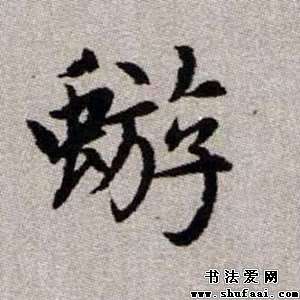 蝣
书法爱网
www.shufaai.com